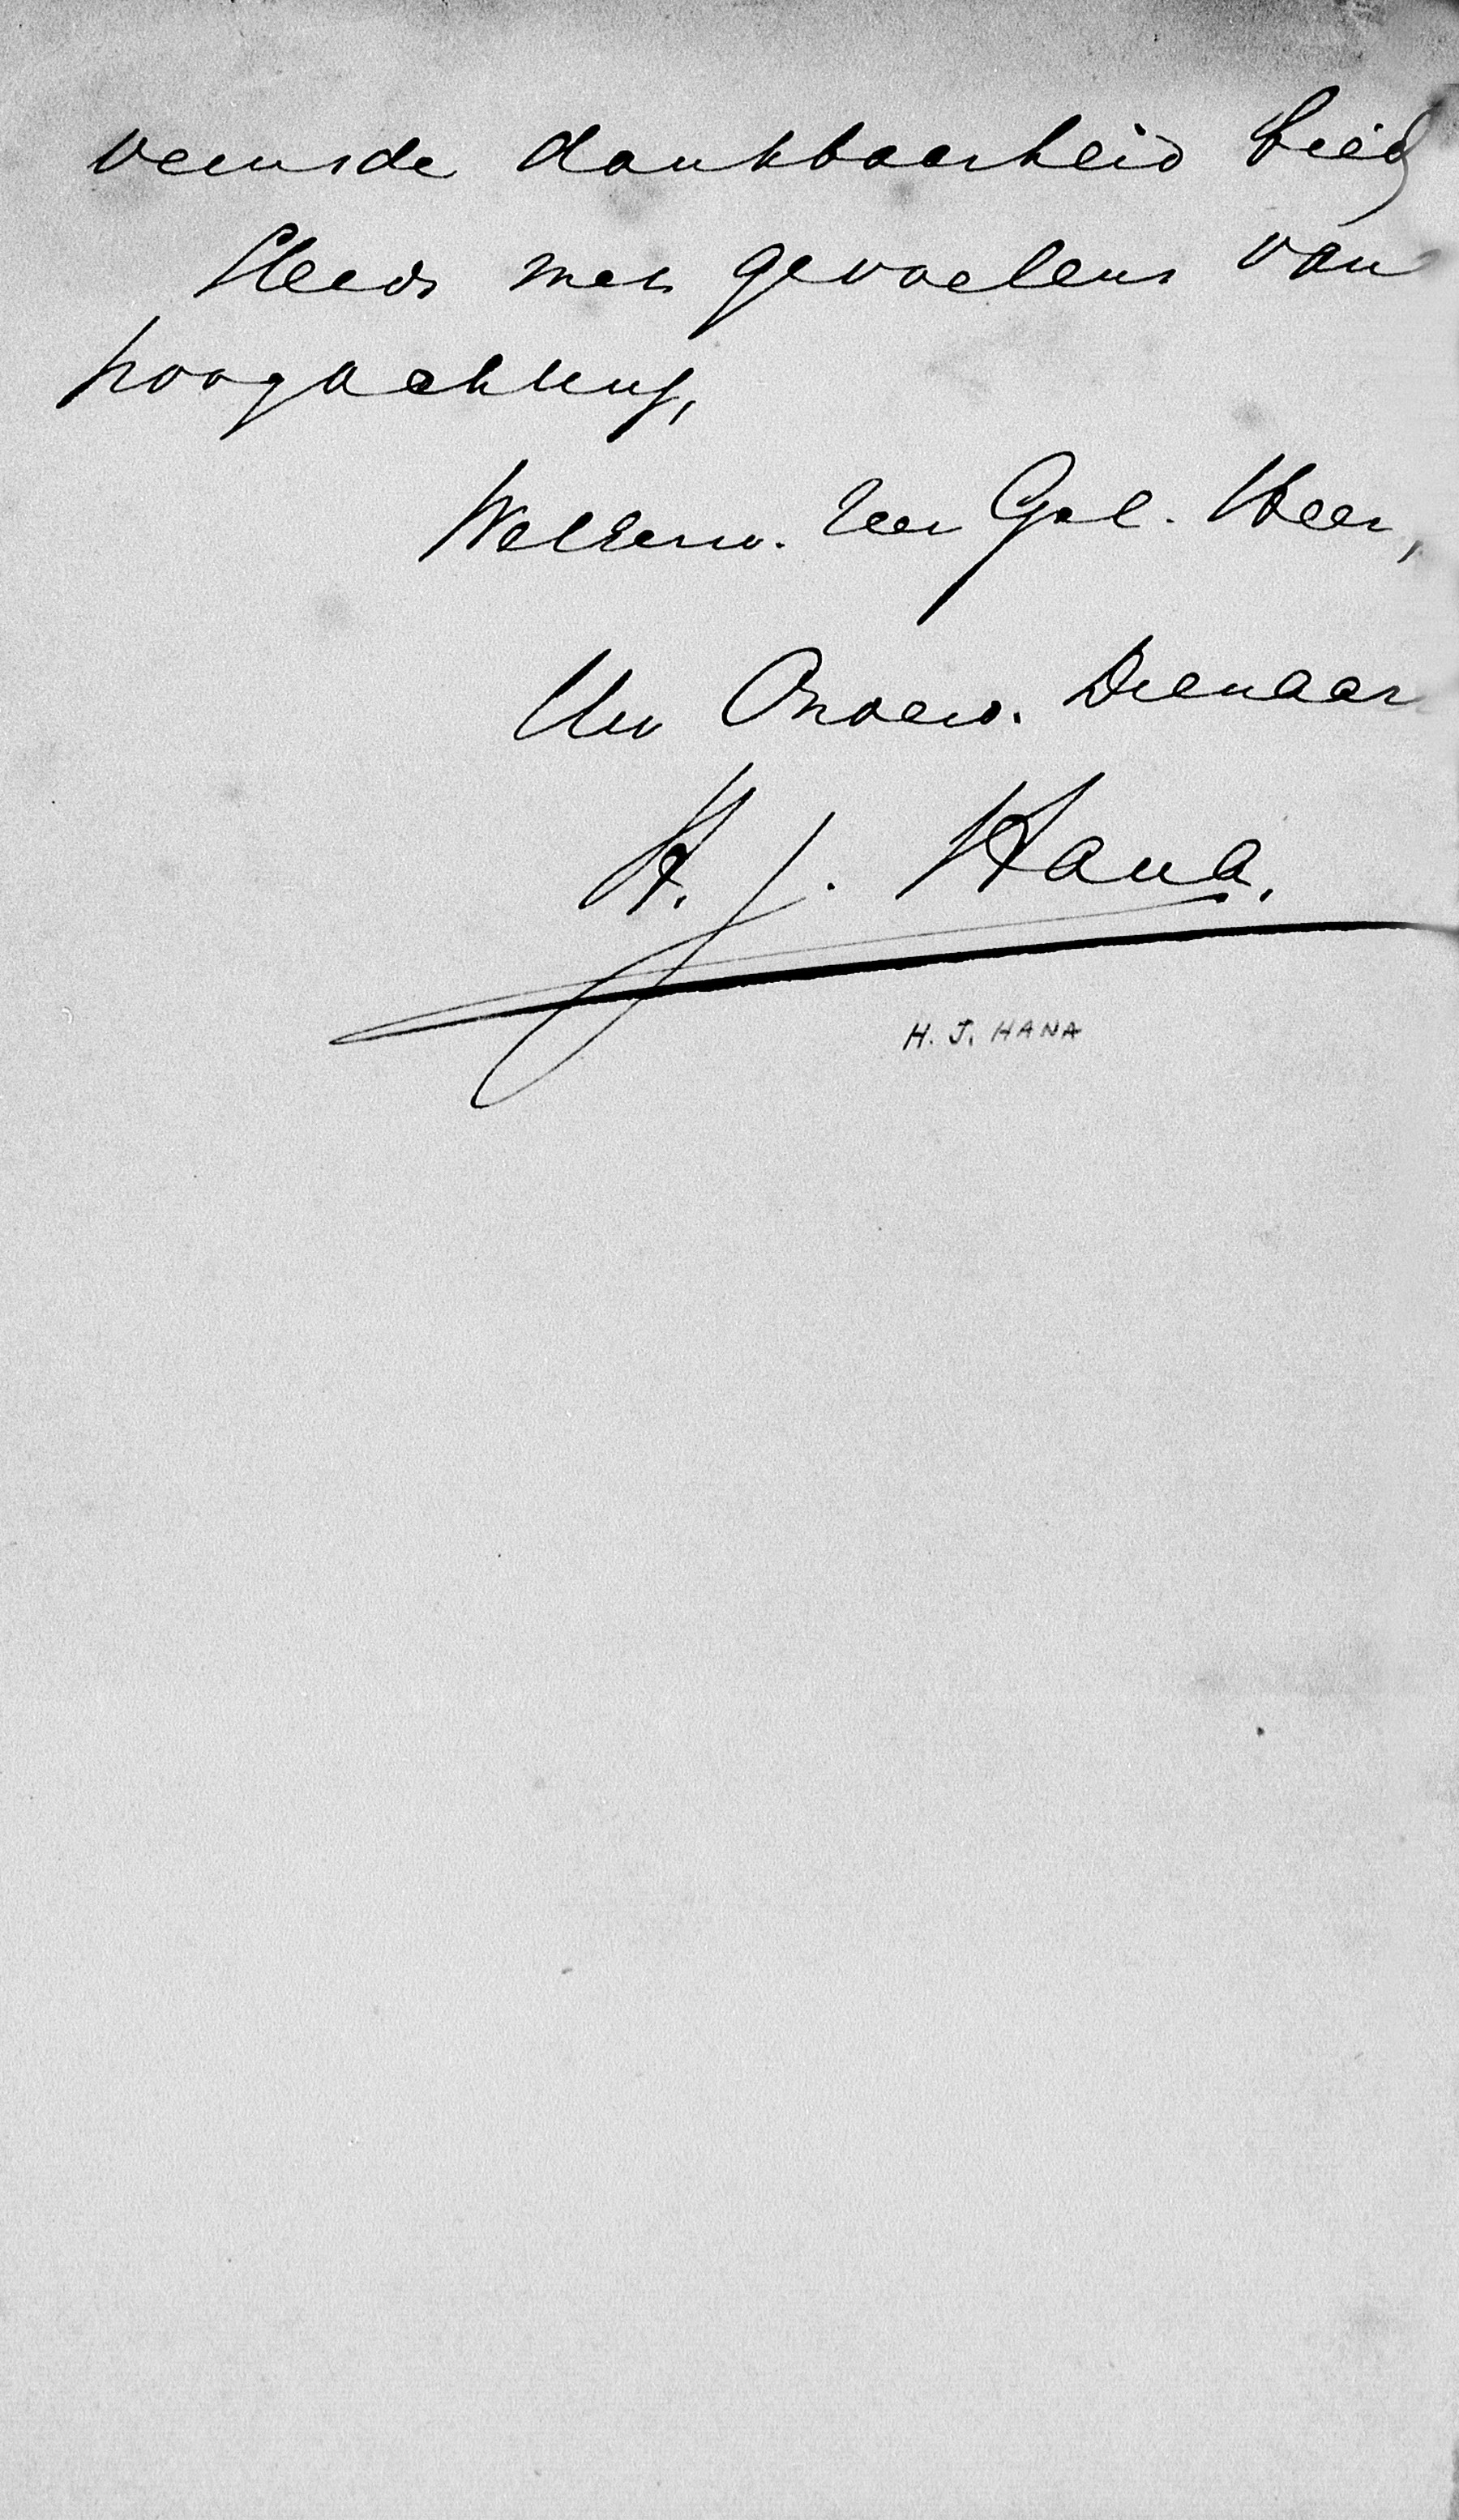 veinsde dankbaarheid bied
Steeds met gevoelens van
hoogachting,
WelEerw. Zeer Gel. Heer,
Uw Onderw. Dienaar
H. J. Hana.
H. J. HANA